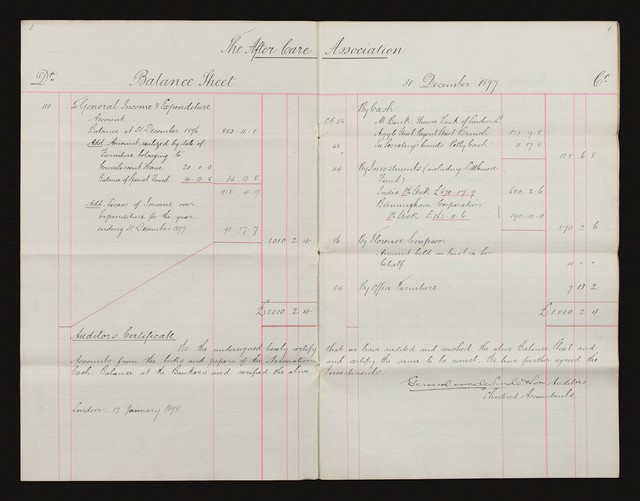 The After Care Association
Dr. Balance Sheet 31 December 1897. Cr.
110 To General Income & Expenditure
Account.
Balance at 31 December 1896 883 11 1
Add Amount realized by sale of
Furniture belonging to
Convalescent Home 20 0 0
Balance of Special Fund 14 13 8 34 13 8
918 4 9
Add Excess of Income over
Expenditure for the year
ending 31 December 1897 91 17 7
1,010 2 4
£1,010 2 4
By Cash
At Bank
Argyle Street Regent Street Branch
In Secretary's hands Petty Cash
128 6 8
By Investments (including
Fund)
India Stock £670.17.9 680 2 6
Birmingham Corporation
Stock 190 0 0
870 2 6
By Florence Simpson
Amount held in trust on her
behalf
By Office Furniture 7 13 2
£1,010 2 4
Auditors Certificate
We the undersigned hereby certify that we have audited and vouched the above Balance Sheet and
Accounts from the books and papers of the Association and certify the same to be correct. We have further agreed the
Cash Balance at the Bankers and verified the above Investments.
Auditors
Chartered Accountants.
London. 17 January 1898.